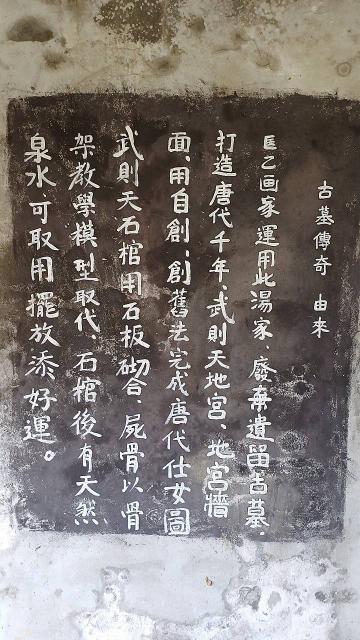 古墓傳奇 由來
匡乙画家運用此湯家、廢棄遺留古墓.
打造唐代千年、武則天地宮、地宮牆
面、用自創、創舊法完成唐代仕女圖
武則天石棺用石板砌合、屍骨以骨
架教學模型取代、石棺後有天然
泉水可取用擺放添好運。